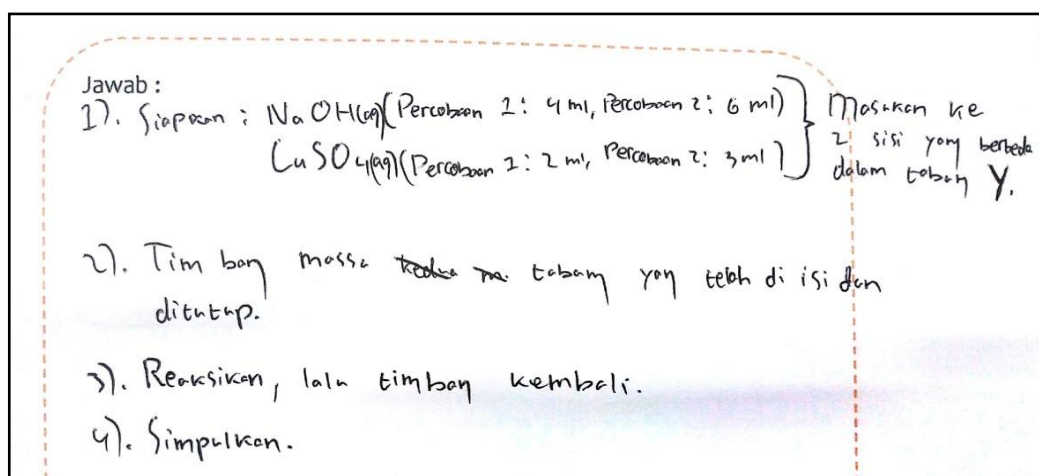 Jawab :
1). Siapkan : NaOH(aq)(Percobaan 1: 4 ml, Percobaan 2: 6 ml)
CuSO4(aq)(Percobaan 1: 2 ml, Percobaan 2: 3 ml)
Masukan ke
2 sisi yang berbeda
dalam tabung Y.
2). Timbang massa tabung yang telah di isi dan
ditutup.
3). Reaksikan, lalu timbang kembali.
4). Simpulkan.